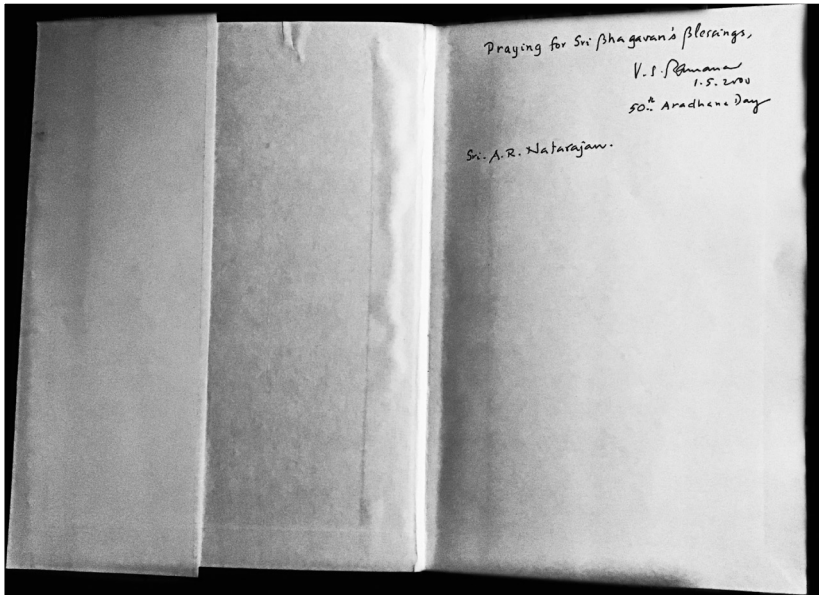 Praying for Sri Bhagavan's Blessings,
V.S. Ramanan
1.5.2000
50th Aradhana Day
Sri. A.R. Natarajan.